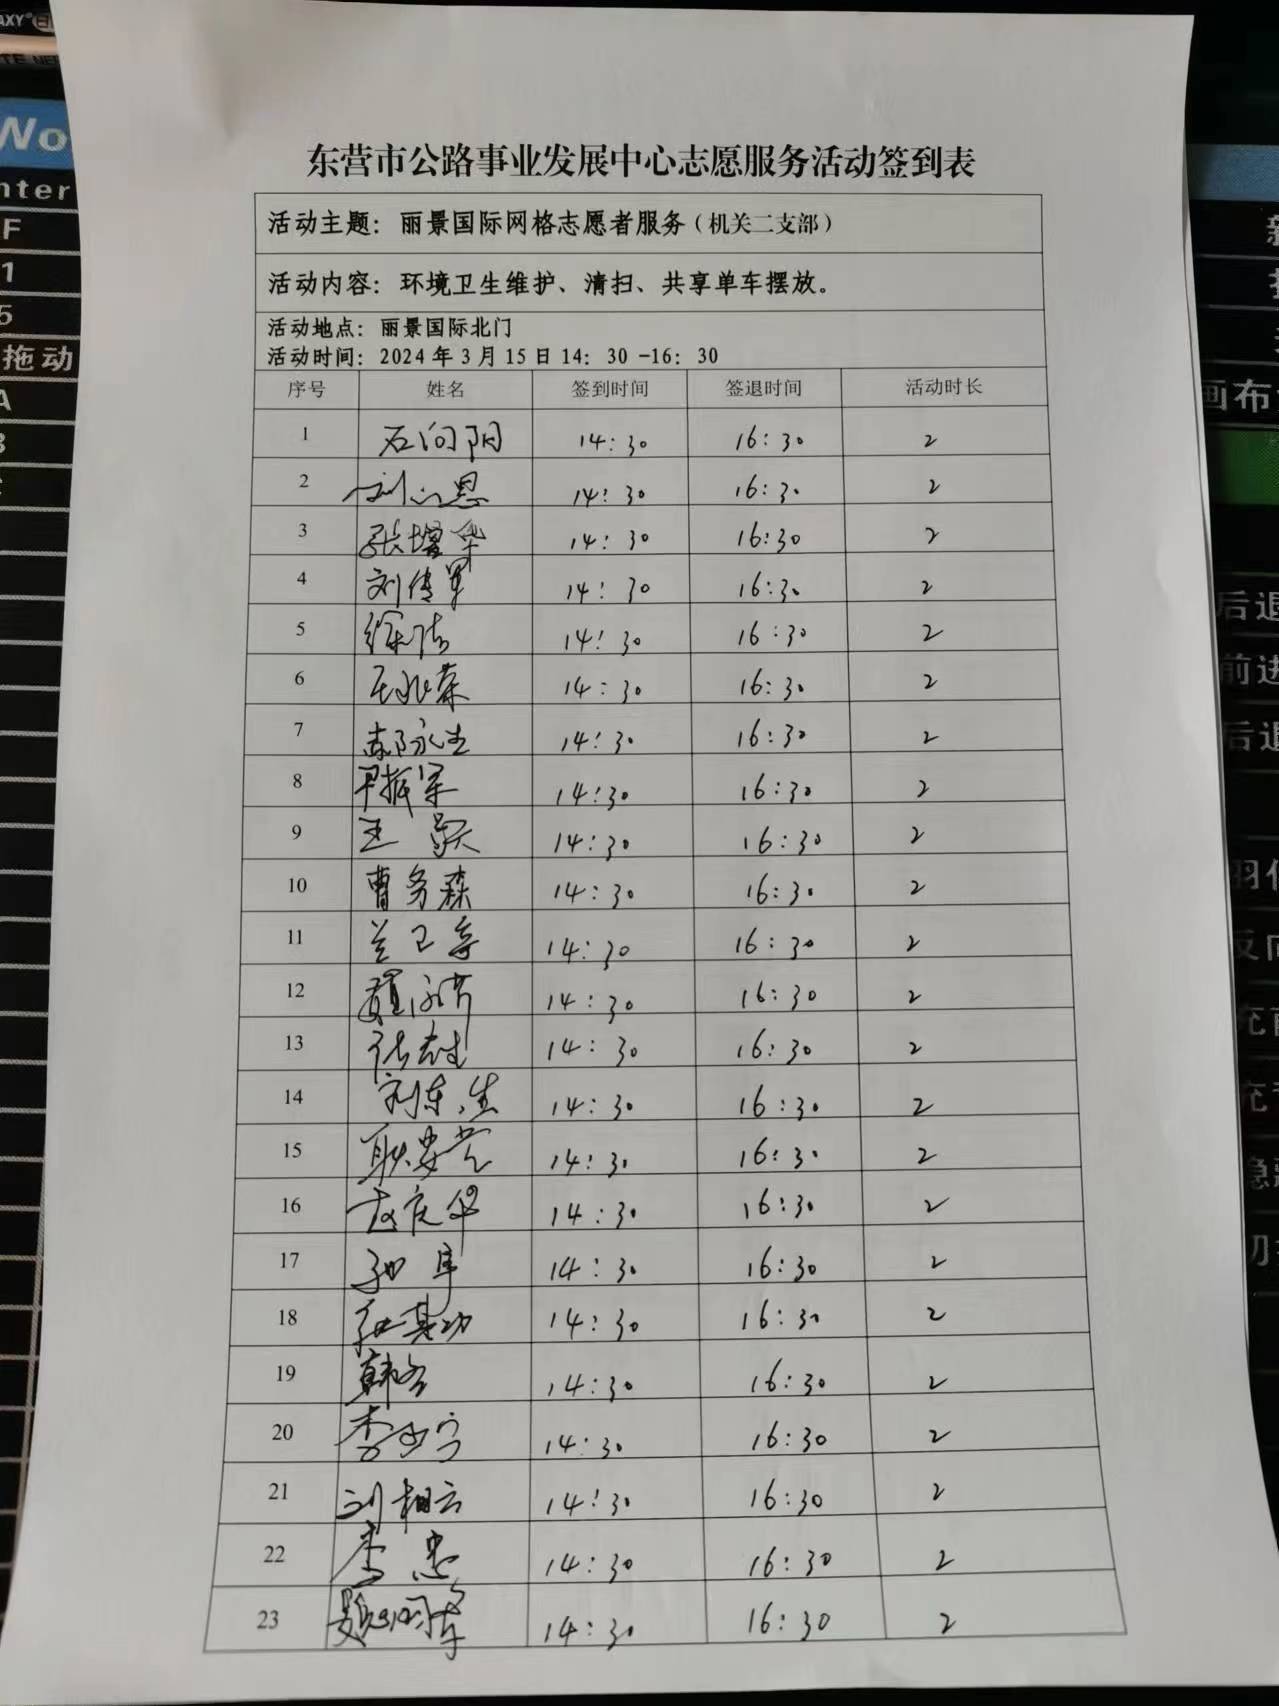 AXY
Wo
nter
F
1
5
拖动
A
东营市公路事业发展中心志愿服务活动签到表
活动主题：丽景国际网格志愿者服务（机关二支部）
活动内容：环境卫生维护、清扫、共享单车摆放。
活动地点：丽景国际北门
活动时间：2024年3月15日14：30-16：30
序号 姓名 签到时间 签退时间 活动时长
1 石向阳 14:30 16:30 2
2 14:30 16:30 2
3 张增华 14:30 16:30 2
4 刘传军 14:30 16:30 2
5 徐洁 14:30 16:30 2
6 14:30 16:30 2
7 14:30 16:30 2
8 尹振军 14:30 16:30 2
9 王 14:30 16:30 2
10 曹务森 14:30 16:30 2
11 兰卫 14:30 16:30 2
12 14:30 16:30 2
13 14:30 16:30 2
14 刘东生 14:30 16:30 2
15 耿安 14:30 16:30 2
16 14:30 16:30 2
17 14:30 16:30 2
18 14:30 16:30 2
19 韩 14:30 16:30 2
20 李 14:30 16:30 2
21 刘相云 14:30 16:30 2
22 李忠 14:30 16:30 2
23 14:30 16:30 2
画布
后退
前进
后退